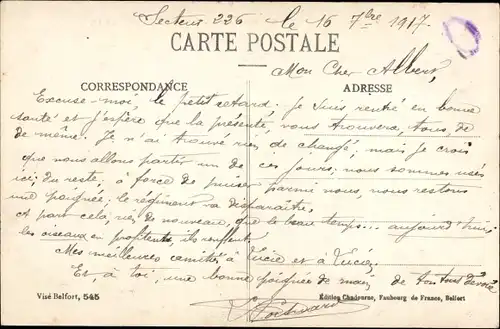 Secteur 226 le 16 7bre 1917
CARTE POSTALE
Mon Cher Albert,
CORRESPONDANCE
ADRESSE
Excuse-moi, le petit retard. Je suis rentré en bonne
santé et j'espère que la présente, vous trouvera, tous, de
de même. Je n'ai trouvé rien de changé; mais je crois
que nous allons partir un de ces jours; nous sommes usés
ici; du reste, à force de puiser parmi nous, nous restons
une poignée; le régiment va disparaître.
A part cela, rien de nouveau, que le beau temps... aujourd'hui
les oiseaux en profitent, ils ronflent.
Mes meilleures amitiés à Lucie et à
Et, à toi, une bonne poignée de main de ton tout dévoué
Visé Belfort, 545
Édition Chadourne, Faubourg de France, Belfort